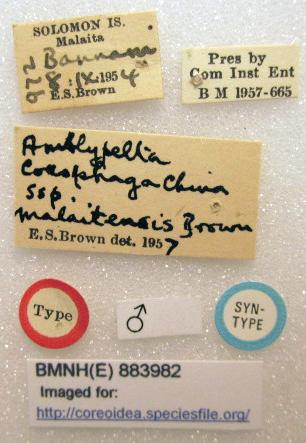 SOLOMON IS.
Malaita
8:IX.1954
E.S.Brown
Pres by
Com Inst Ent
B M 1957-665
Amblypelta
ssp.
malaitensis Brown
E.S.Brown det. 1957
Type
♂
SYN-
TYPE
BMNH(E) 883982
Imaged for:
http://coreoidea.speciesfile.org/